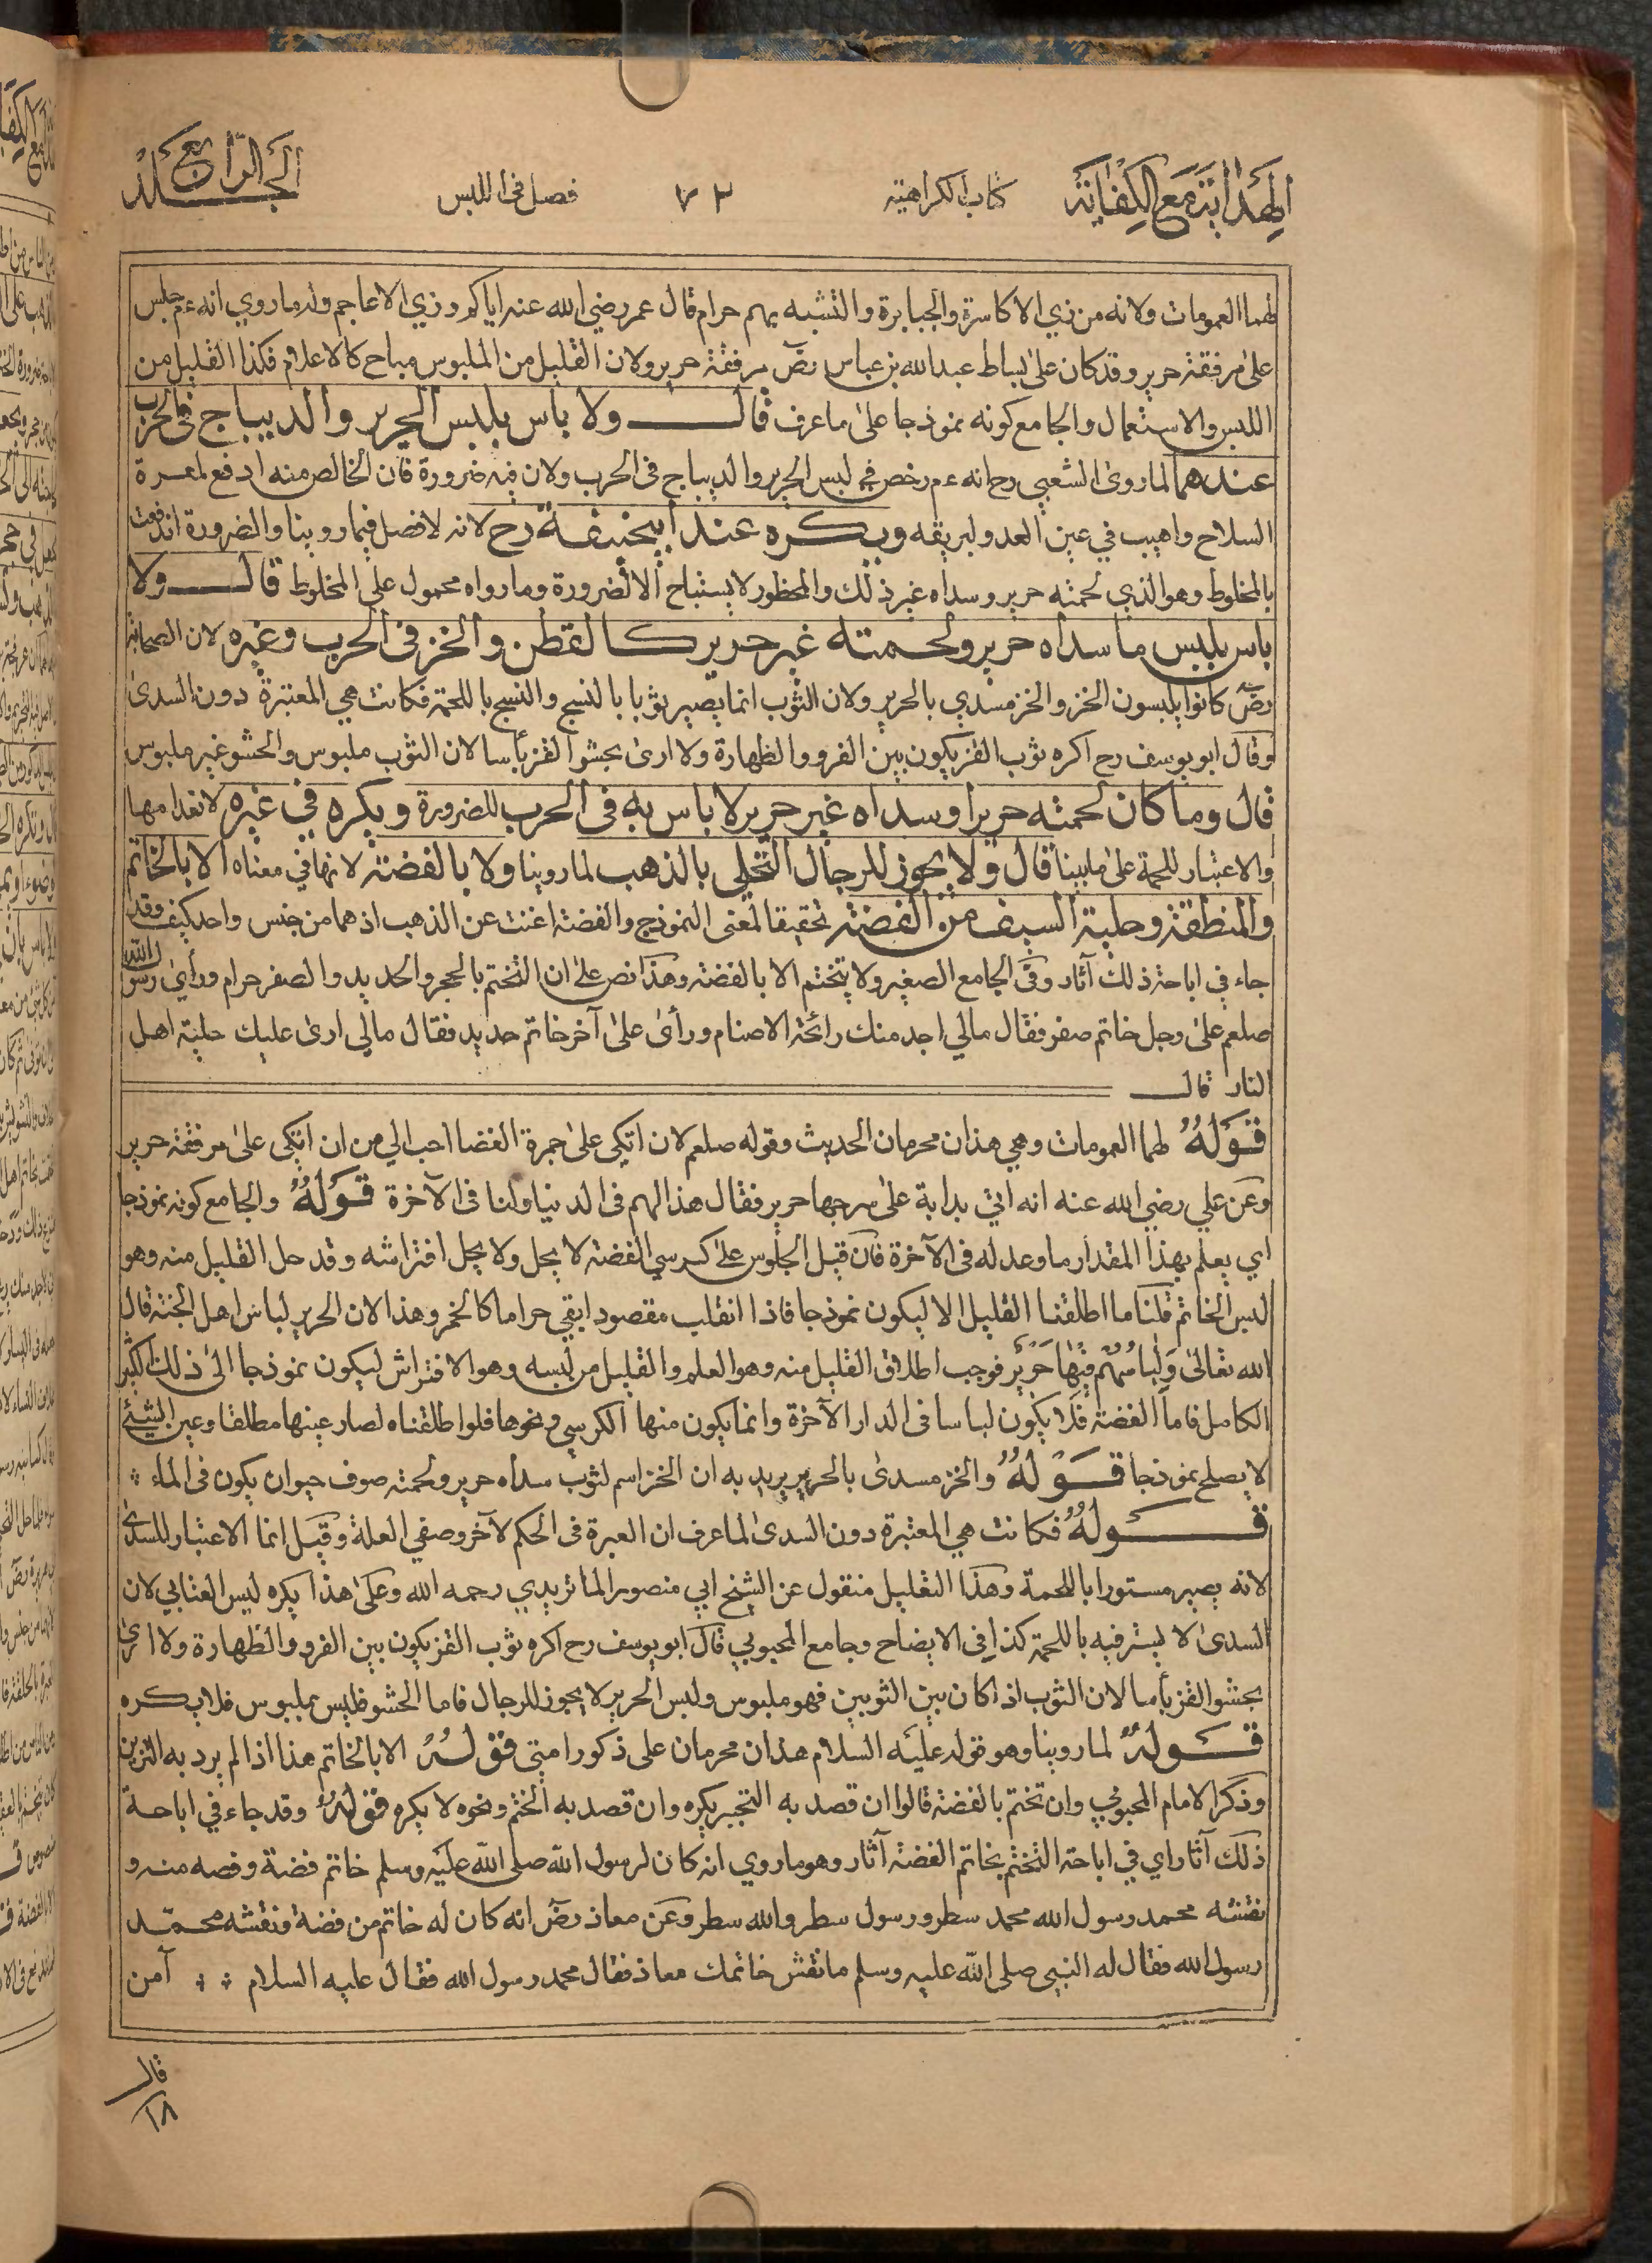 الهداية مع الكفاية
كتاب الكراهية
٧٢
فصل في اللبس
الجلد الرابع
لهما العمومات ولانه من زي الاكاسرة والجبابرة والتشبه بهم حرام قال عمر رضي الله عنه اياكم وزي الاعاجم وله ما روي انه ءم جلس
على مرفقة حرير وقد كان على بساط عبدالله بن عباس رضّ مرفقة حرير ولان القليل من الملبوس مباح كالاعلام فكذا القليل من
اللبس والاستعمال والجامع كونه نموذجا على ما عرف قال ولا باس بلبس الحرير والديباج في الحرب
عندهما لما روى الشعبي رح انه ءم رخص في لبس الحرير والديباج في الحرب ولان فيه ضرورة فان الخالص منه ادفع لمعرة
السلاح واهيب في عين العدو لبريقه ويكره عند ابيحنيفة رح لانه لافصل فيما روينا والضرورة اندفعت
بالمخلوط وهو الذي لحمته حرير وسداه غير ذلك والمحظور لا يستباح الا لضرورة وما رواه محمول على المخلوط قال ولا
باس بلبس ما سداه حرير ولحمته غير حرير كالقطن والخز في الحرب وغيره لان الصحابة
رضّ كانوا يلبسون الخز والخز مسدي بالحرير ولان الثوب انما يصير ثوبا بالنسج والنسج باللحمة فكانت هي المعتبرة دون السدى
وقال ابو يوسف رح اكره ثوب القز يكون بين الفرو والظهارة ولا ارى بحشو القز بأسا لان الثوب ملبوس والحشو غير ملبوس
قال وما كان لحمته حريرا وسداه غير حرير لا باس به في الحرب للضرورة ويكره في غيره لانعدامها
والاعتبار للحمة على ما بينا قال ولا يجوز للرجال التحلي بالذهب لما روينا ولا بالفضة لانها في معناه الا بالخاتم
والمنطقة وحلية السيف من الفضة تحقيقا لمعنى النموذج والفضة اغنت عن الذهب اذ هما من جنس واحد كيف وقد
جاء في اباحة ذلك آثار وفي الجامع الصغير ولا يتختم الا بالفضة وهذا نص على ان التختم بالحجر والحديد والصفر حرام ورأى رسول الله
صلعم على رجل خاتم صفر فقال مالي اجد منك رائحة الاصنام ورأى على آخر خاتم حديد فقال مالي ارى عليك حلية اهل
النار قال
قَوْلُهُ لهما العمومات وهي هذان محرمان الحديث وقوله صلعم لان اتكى على جمرة الغضا احب الي من ان اتكى على مرفقة حرير
وعن علي رضي الله عنه انه اتي بدابة على سرجها حرير فقال هذا لهم في الدنيا ولنا في الآخرة قَوْلُهُ والجامع كونه نموذجا
اي يعلم بهذا المقدار ما وعد له في الآخرة فان قيل الجلوس على كرسي الفضة لا يحل ولا يحل افتراشه وقد حل القليل منه وهو
لبس الخاتم قلنا ما اطلقنا القليل الا ليكون نموذجا فاذا انقلب مقصودا بقي حراما كالخمر وهذا لان الحرير لباس اهل الجنة قال
الله تعالى وَلِبَاسُهُمْ فِيْهَا حَرِيْرٌ فوجب اطلاق القليل منه وهو العلم والقليل من لبسه وهو الافتراش ليكون نموذجا الى ذلك الكثير
الكامل فاما الفضة فلا يكون لباسا في الدار الآخرة وانما يكون منها الكرسي ونحوها فلو اطلقناه لصار عينها مطلقا وعين الشيئ
لا يصلح نموذجا قَوْلُهُ والخز مسدى بالحرير يريد به ان الخز اسم لثوب سداه حرير ولحمته صوف حيوان يكون في الماء
قَوْلُهُ فكانت هي المعتبرة دون السدى لما عرف ان العبرة في الحكم لآخر وصفي العلة وقيل انما الاعتبار للسدى
لانه يصير مستورا باللحمة وهذا التعليل منقول عن الشيخ ابي منصور الماتريدي رحمه الله وعلى هذا يكره لبس العتابي لان
السدى لا يستر فيه باللحمة كذا في الايضاح وجامع المحبوبي قال ابو يوسف رح اكره ثوب القز يكون بين الفرو والظهارة ولا ارى
بحشو القز بأسا لان الثوب اذا كان بين الثوبين فهو ملبوس ولبس الحرير لا يجوز للرجال فاما الحشو فليس بملبوس فلا يكره
قَوْلُهُ لما روينا وهو قوله عليه السلام هذان محرمان على ذكور امتي قَوْلُهُ الا بالخاتم هذا اذا لم يرد به التزين
وذكر الامام المحبوبي وان تختم بالفضة قالوا ان قصد به التجبر يكره وان قصد به الختم ونحوه لا يكره قَوْلُهُ وقد جاء في اباحة
ذلك آثار اي في اباحة التختم بخاتم الفضة آثار وهو ما روي انه كان لرسول الله صلى الله عليه وسلم خاتم فضة وفصه منه و
نقشه محمد رسول الله محمد سطر ورسول سطر والله سطر وعن معاذ رضّ انه كان له خاتم من فضة ونقشه محمّد
رسول الله فقال له النبي صلى الله عليه وسلم ما نقش خاتمك معاذ فقال محمد رسول الله فقال عليه السلام آمن
قال
١٨